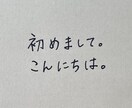 初めまして。
こんにちは。